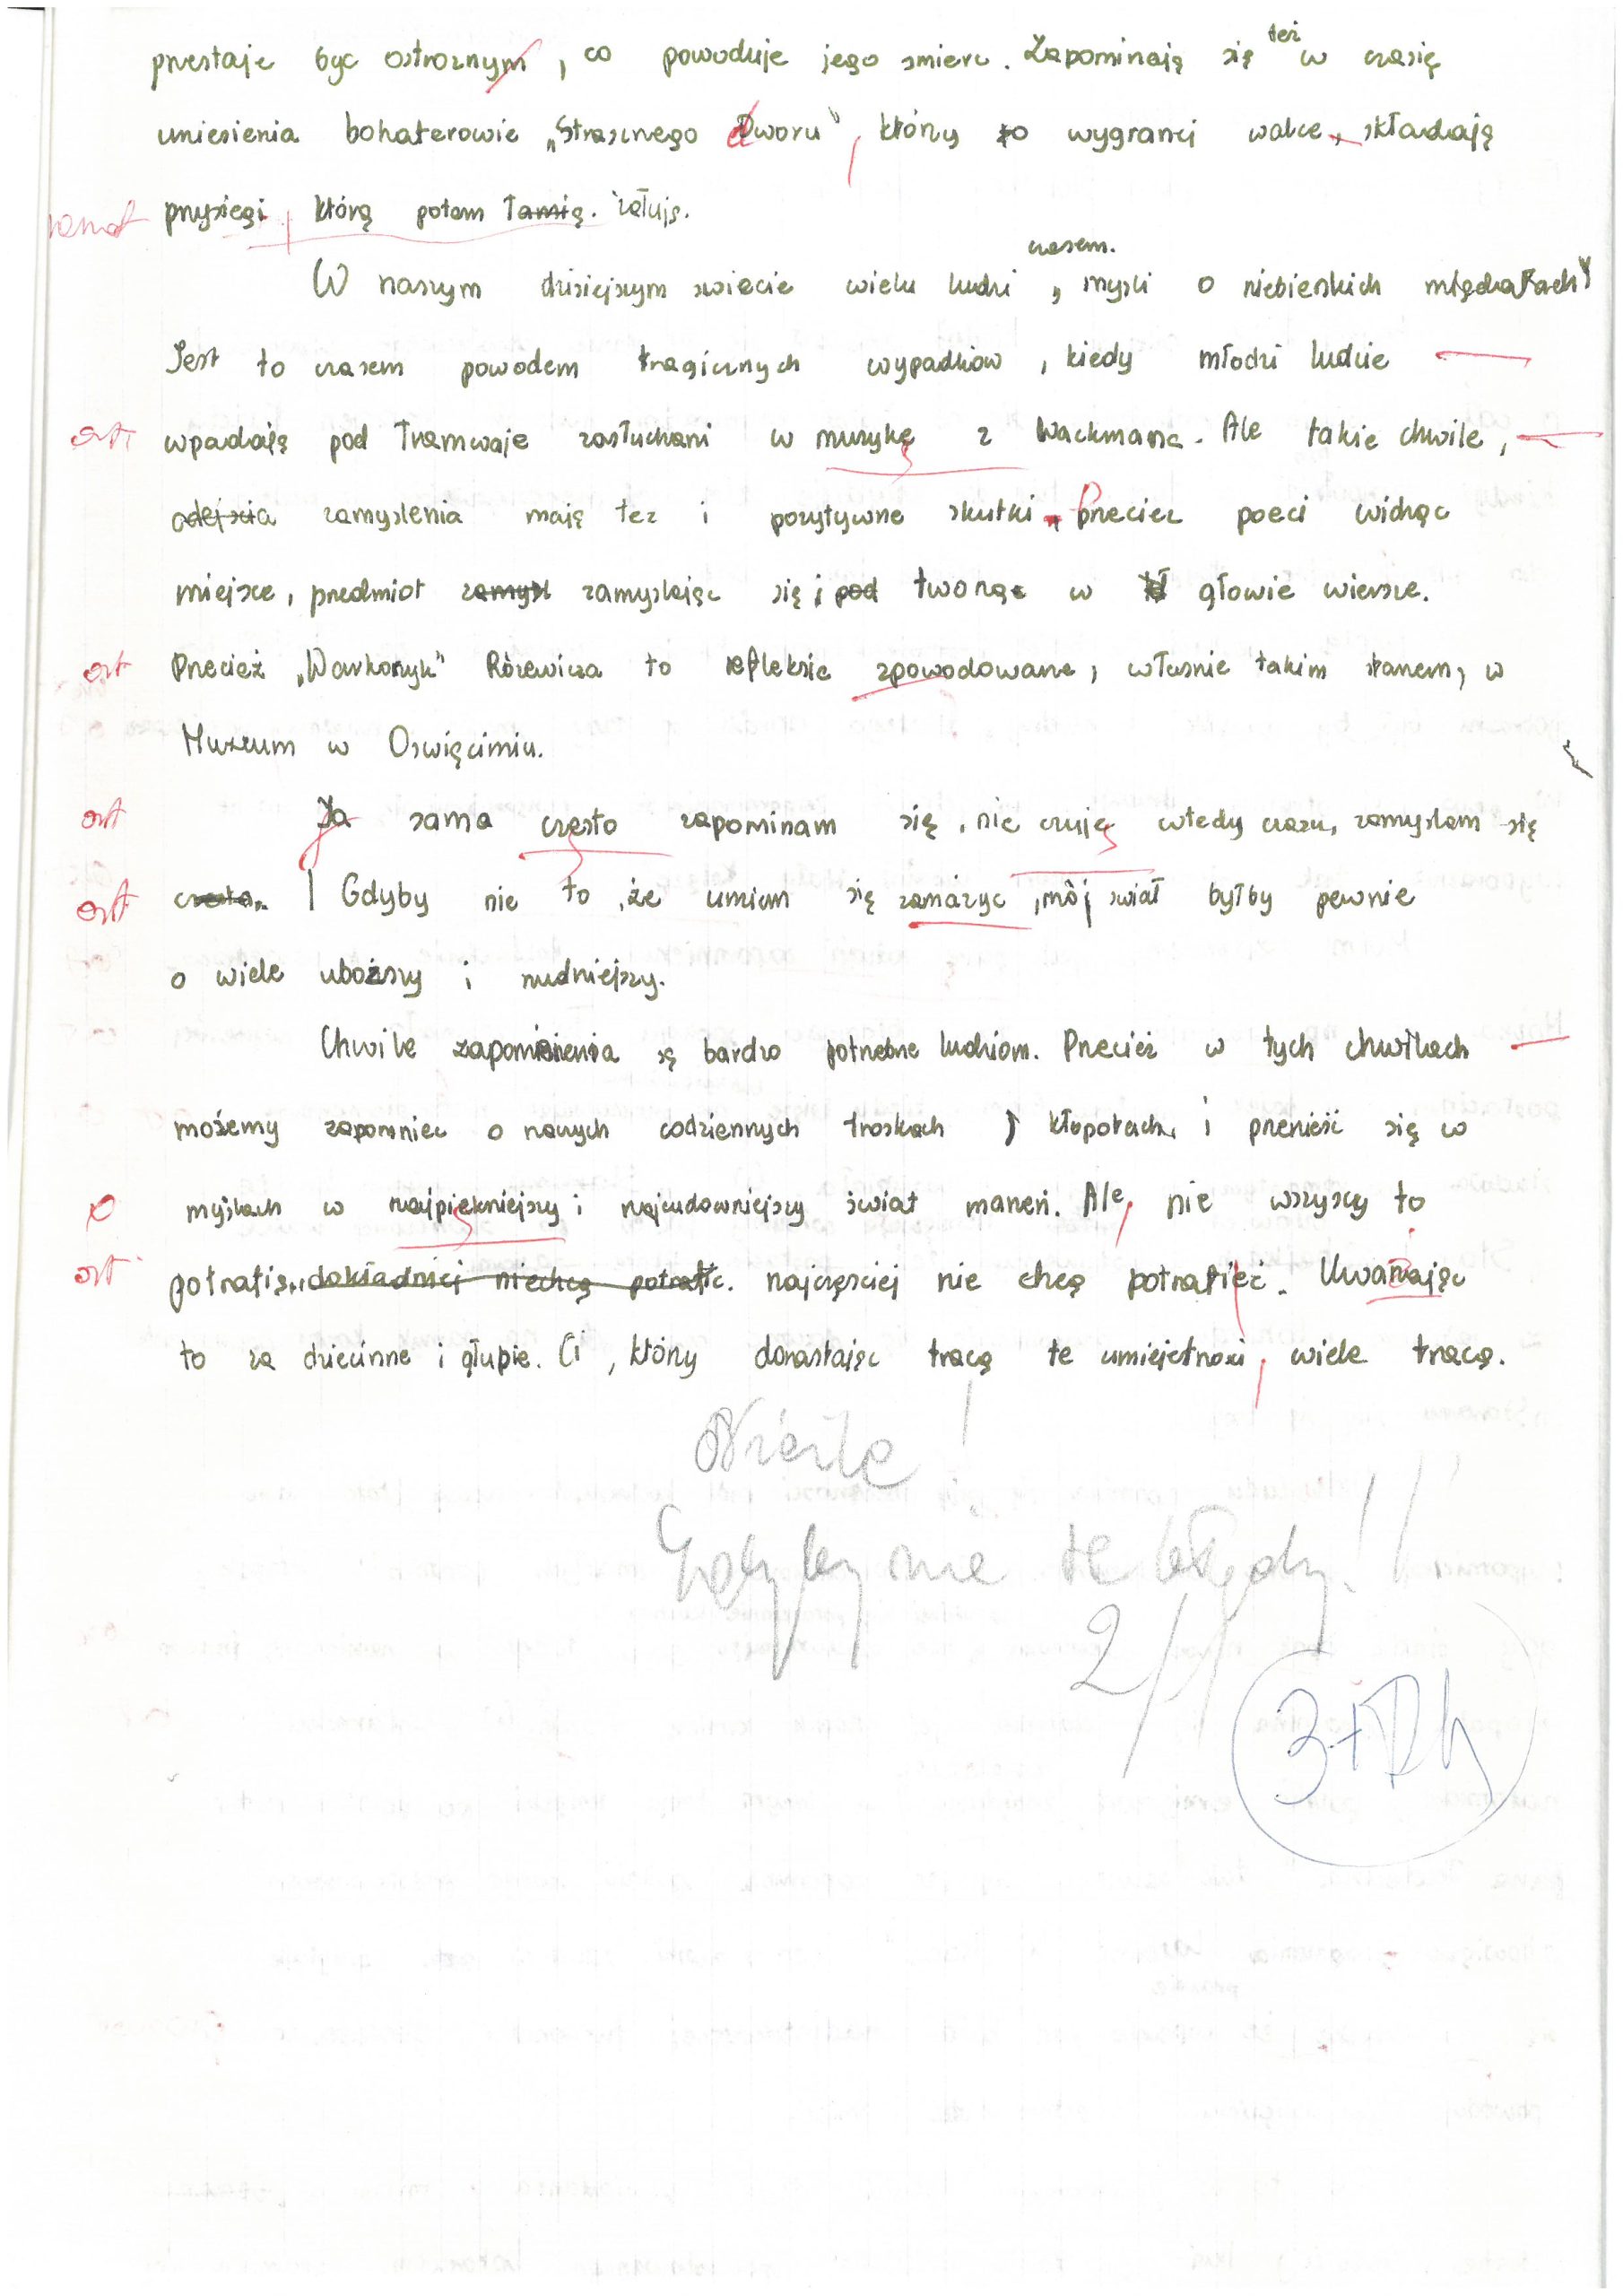 przestaje byc ostroznym, co powoduje jego smierc. Zapominają się też w czasię
uniesienia bohaterowie „Strasznego Dworu", którzy po wygranej walce, składają
przysięgi którą potem łamią. żałują.
W naszym dzisiejszym swiecie wielu ludzi czasem. „mysli o niebieskich migdałach"
Jest to czasem powodem tragicznych wypadków, kiedy młodzi ludzie
ort wpadają pod tramwaje zasłuchani w muzykę z Wackmana. Ale takie chwile,
odejscia zamyslenia mają tez i pozytywne skutki. Przeciez poeci widząc
miejsce, przedmiot zamysl zamyslając się i pod tworzą w głowie wiersze.
ort Przecież „Warkoczyk" Rózewicza to refleksie zpowodowane, własnie takim stanem, w
Muzeum w Oswięcimiu.
ort Ja sama często zapominam się, nie czuję wtedy czasu, zamyslam się
ort często. | Gdyby nie to, że umiem się zamażyc, mój swiat byłby pewnie
o wiele uboższy i nudniejszy.
Chwile zapomnienia są bardzo potrzebne ludziom. Przecież w tych chwilkach
możemy zapomniec o naszych codziennych troskach, kłopotach, i przenieść się w
myslach w najpiękniejszy i najcudowniejszy świat marzeń. Ale, nie wszyscy to
ort potrafią, dokładniej niechcą potrafic. najczęsciej nie chcą potrafieć. Uważając
to za dziecinne i głupie. Ci, którzy dorastając tracą te umiejętnosci, wiele tracą.
Nieźle!
Gdyby nie te błędy!!!
2/
3+